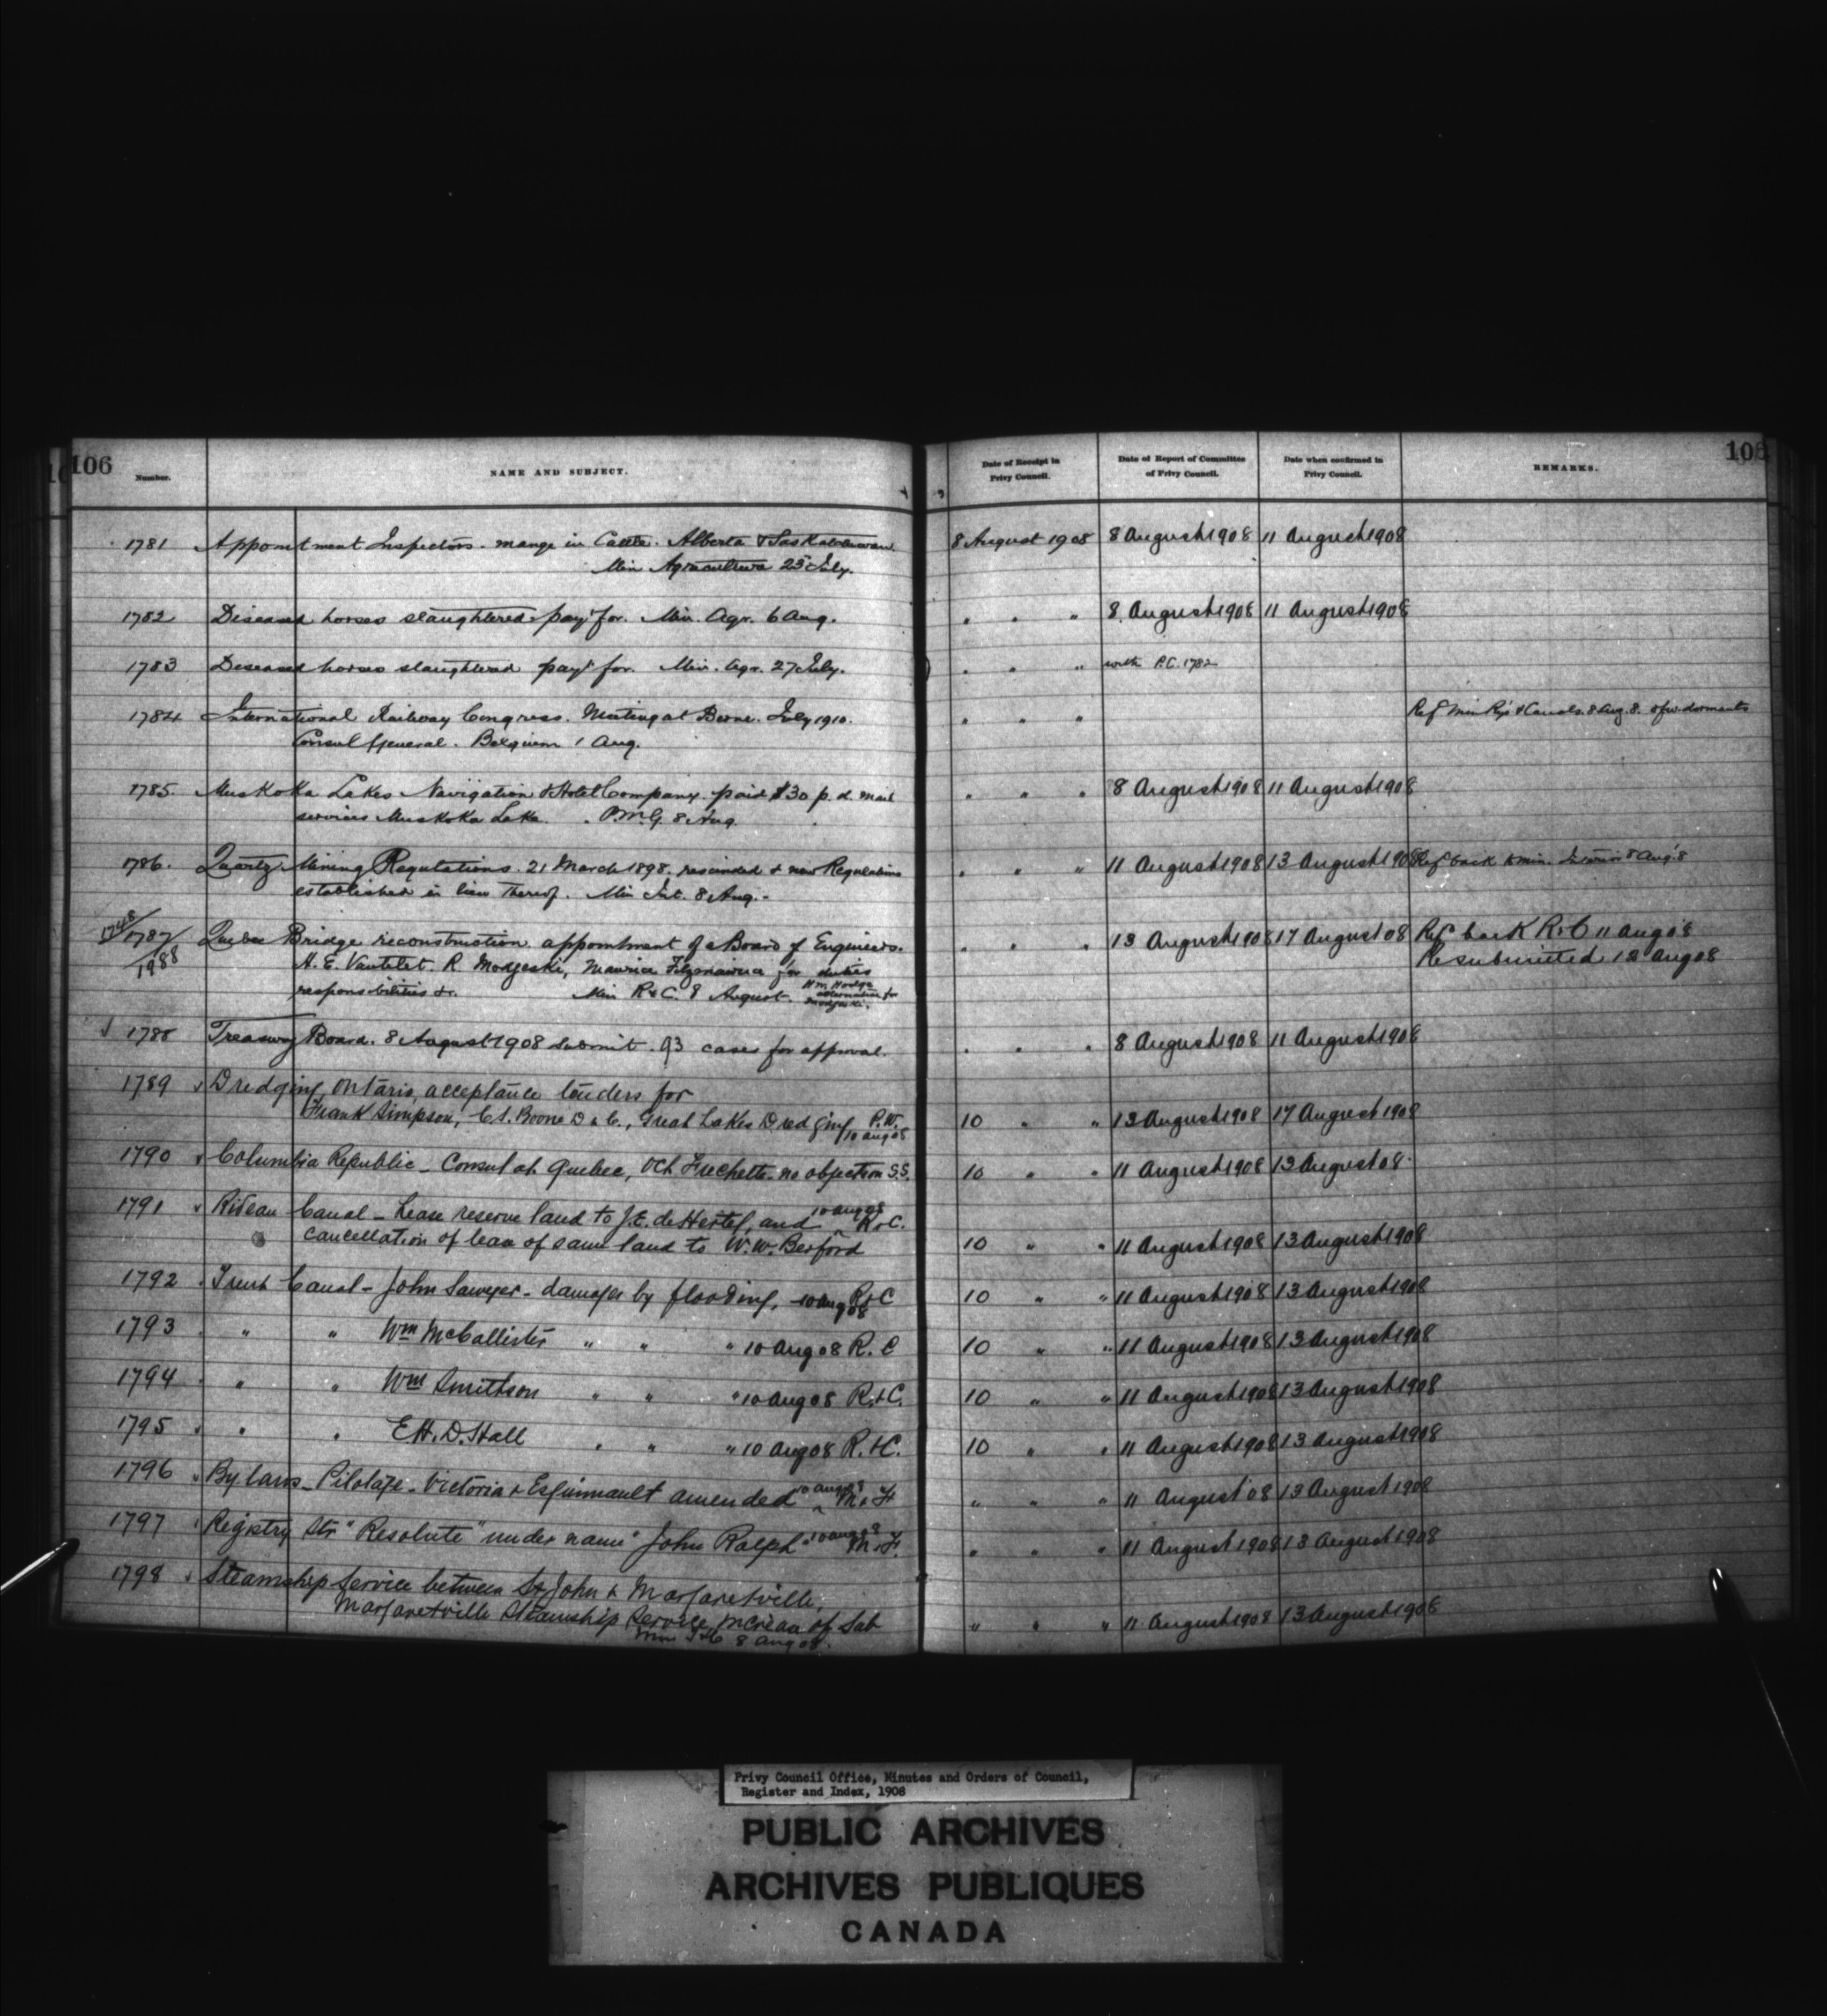 106
Number.
NAME AND SUBJECT.
Date of Receipt in Privy Council.
Date of Report of Committee of Privy Council.
Date when confirmed in Privy Council.
REMARKS.
106
1781 Appointment Inspectors - mange in Cattle. Alberta & Saskatchewan 8 August 1908 8 August 1908 11 August 1908
Min Agriculture 23 July.
1782 Diseased horses slaughtered payt for. Min. Agr. 6 Aug. " " " 8 August 1908 11 August 1908
1783 Diseased horses slaughtered payt for. Min. Agr. 27 July. " " " with P.C. 1782
1784 International Railway Congress. Meeting at Berne. July 1910. " " " Ref Min Rys & Canals. 8 Aug. 8.
Consul General. Belgium 1 Aug.
1785 Muskoka Lakes Navigation & Hotel Company. paid $30 p. d. mail " " " 8 August 1908 11 August 1908
services Muskoka Lake. P.M.G. 8 Aug.
1786. Quartz Mining Regulations. 21 March 1898. rescinded & new Regulations " " " 11 August 1908 13 August 1908 Ref back to Min. Interior 8 Aug. 8
established in lieu thereof. Min Int. 8 Aug. -
1748/1787/1988 Quebec Bridge reconstruction appointment of a Board of Engineers. " " " 13 August 1908 17 August 08 Ref back R & C 11 Aug 08
H. E. Vautelet. R. Modjeski, Maurice Fitzmaurice for duties Resubmitted 12 Aug 08
responsibilities &c. Min R & C. 8 August. Hm Hodge alternative for Modjeski.
1788 Treasury Board. 8 August 1908 submit. 93 cases for approval. " " " 8 August 1908 11 August 1908
1789 Dredging, Ontario, acceptance tenders for
Frank Simpson, C. S. Boone D & C., Great Lakes Dredging P.W. 10 Aug 08 10 " " 13 August 1908 17 August 1908
1790 Columbia Republic - Consul at Quebec, Oct Frechette - no objection S.S. 10 " " 11 August 1908 13 August 08.
1791 Rideau Canal - Lease reserve land to J.E. de Hertel, and 10 Aug 08 R & C.
cancellation of lease of same land to W. W. Bexford 10 " " 11 August 1908 13 August 1908
1792 Trent Canal - John Sawyer - damages by flooding, 10 Aug 08 R & C 10 " " 11 August 1908 13 August 1908
1793 " " Wm McCallister " " " 10 Aug 08 R. C 10 " " 11 August 1908 13 August 1908
1794 " " Wm Smithson " " " 10 Aug 08 R. & C. 10 " " 11 August 1908 13 August 1908
1795 " " E H. D. Hall " " " 10 Aug 08 R. & C. 10 " " 11 August 1908 13 August 1908
1796 By laws - Pilotage - Victoria & Esquimault amended 10 Aug 08 M & F " " " 11 August 08 13 August 1908
1797 Registry Str "Resolute" under name "John Ralph" 10 Aug 08 M. & F. " " " 11 August 1908 13 August 1908
1798 Steamship Service between St John & Margaretville,
Margaretville Steamship Service, increase of Sub " " " 11 August 1908 13 August 1908
Min T & C 8 Aug 08.
Privy Council Office, Minutes and Orders of Council,
Register and Index, 1908
PUBLIC ARCHIVES
ARCHIVES PUBLIQUES
CANADA